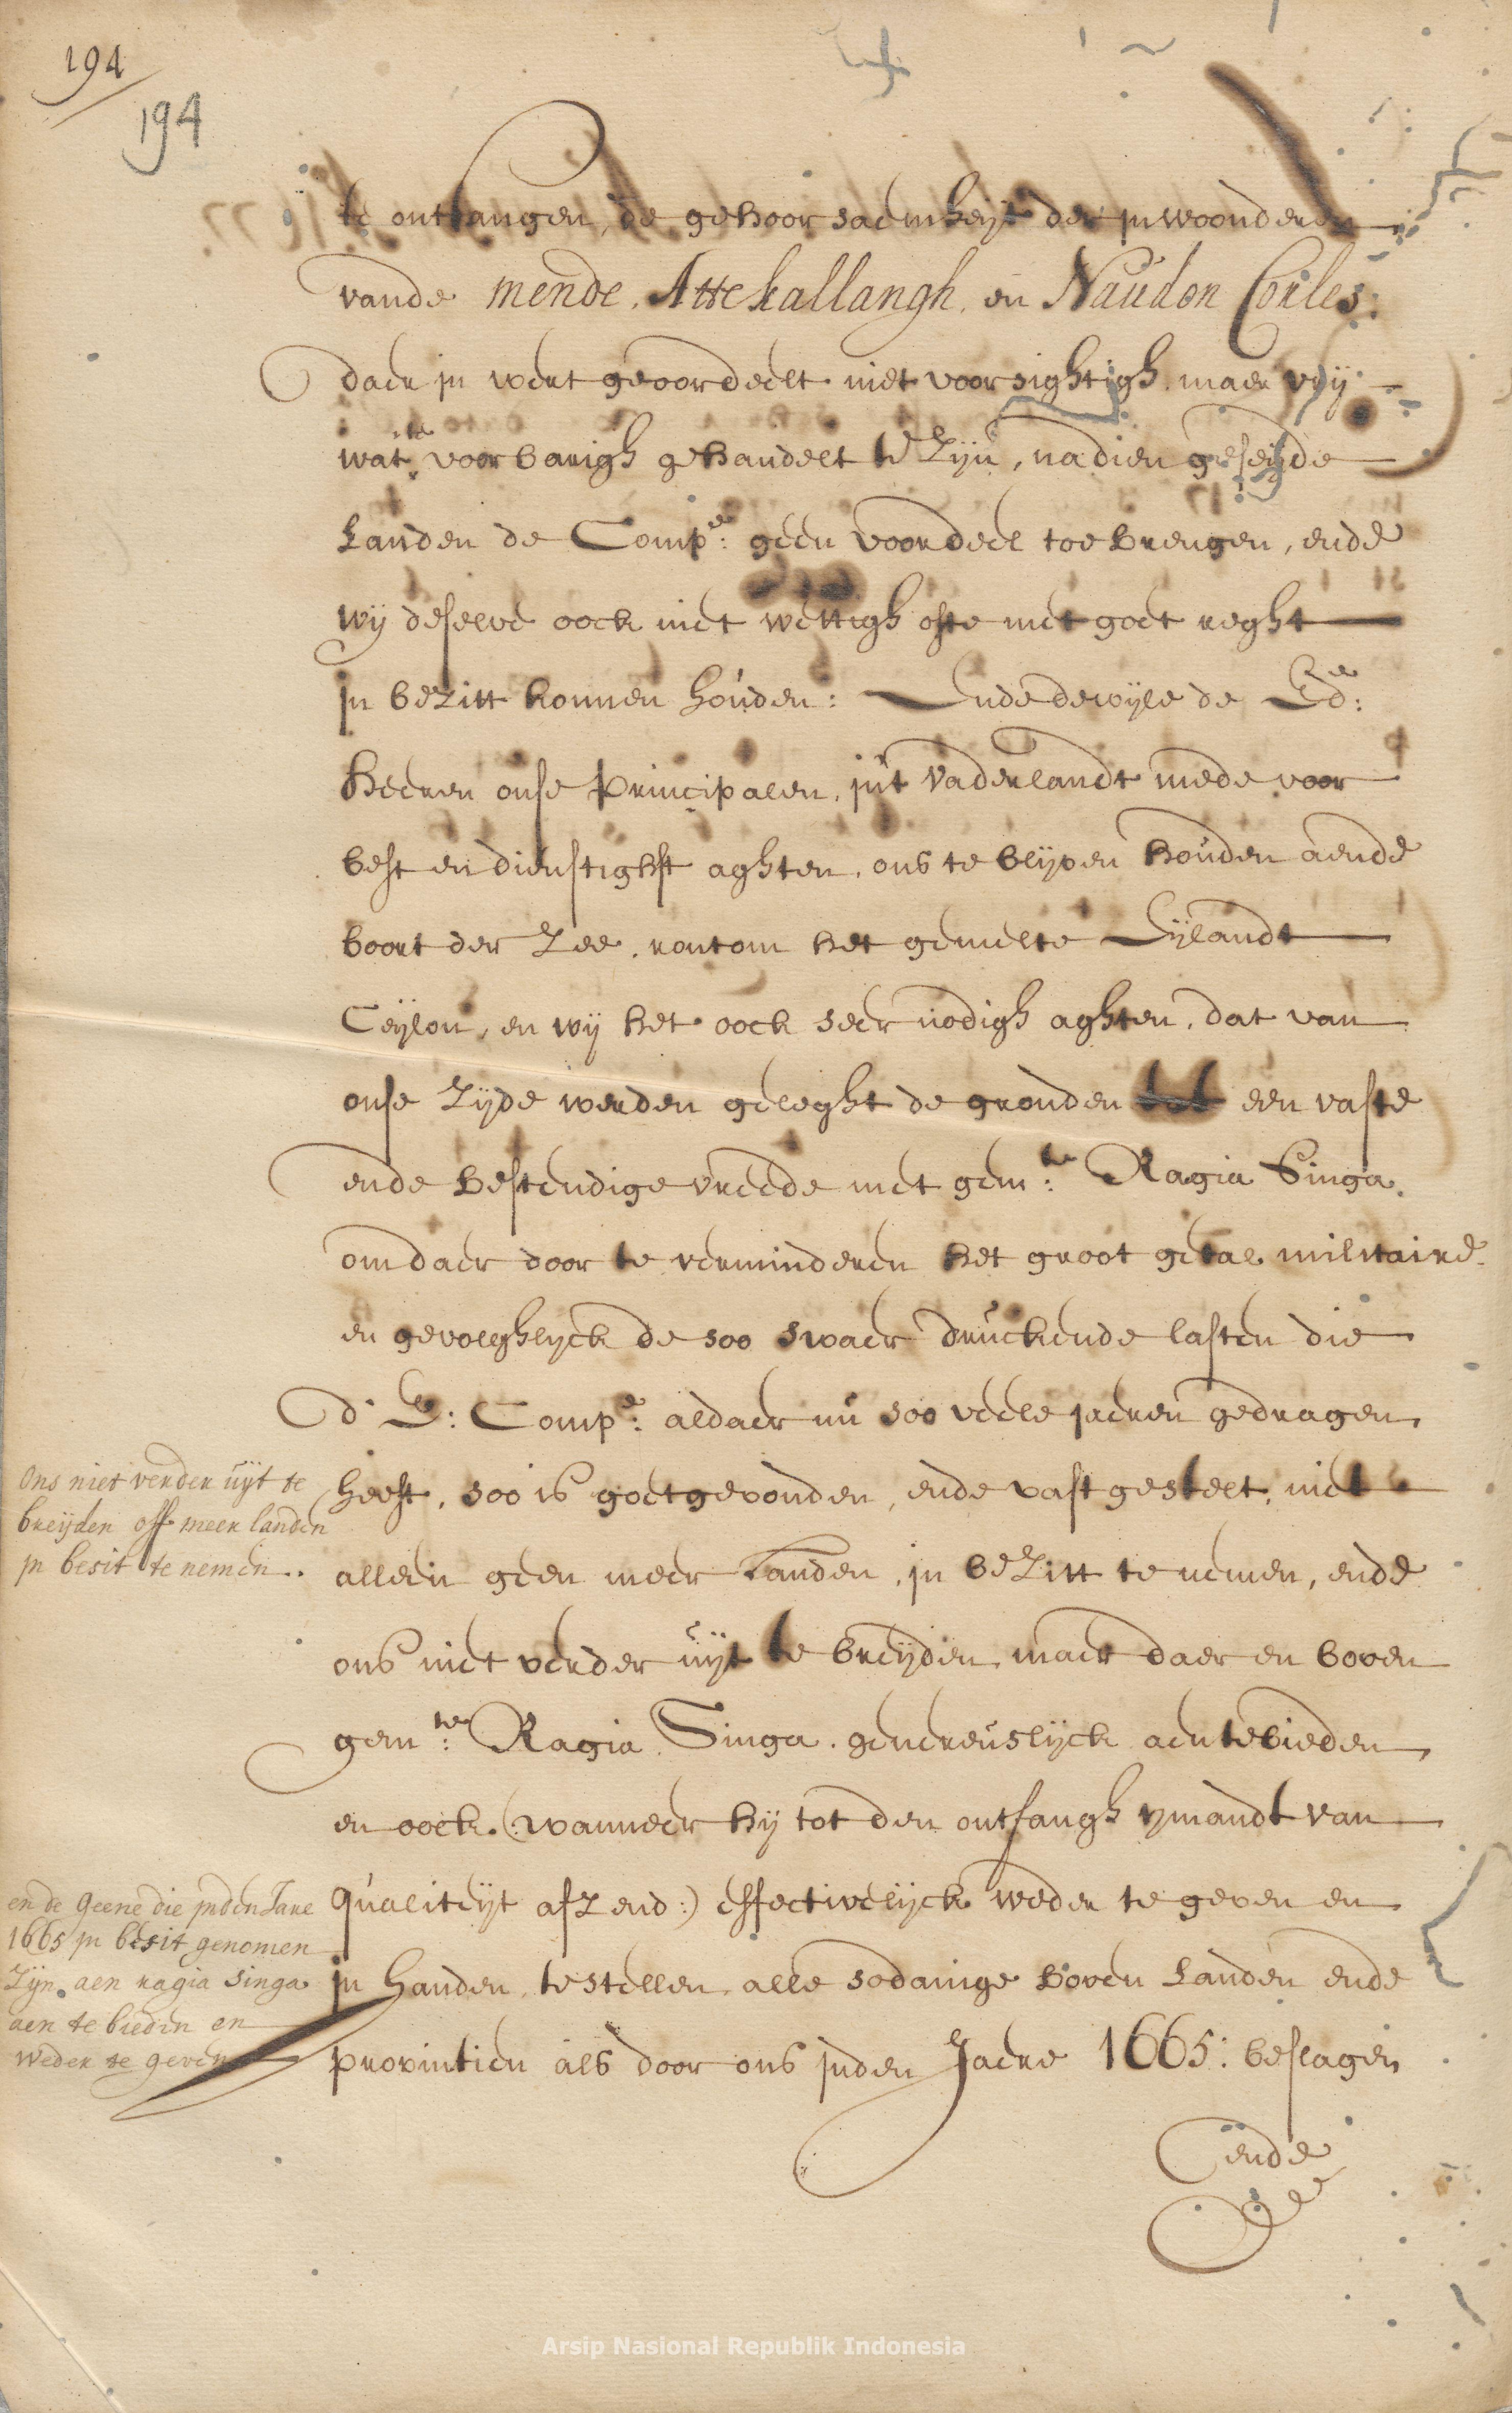 194
194
te ontfangen, de gehoorsaemheijt der jnwoonderen
vande mende, Attekallangh, en Naudon Corles:
daer jn wert geoordeelt niet voorsightigh maer vrij
wat te voorbarigh gehandelt te zijn, nadien geseijde
Landen de Comp:e geen voordeel toebrengen, ende
wij deselve oock niet wettigh ofte met goet reght
jn bezitt konnen houden: Ende dewijle de Ed:e
heeren onse principalen, jnt vaderlandt mede voor
best en dienstighst aghten, ons te blijven houden aende
boort der zee, rontom het gemelte Eijlandt
Ceijlon, en wij het oock seer nodigh aghten, dat van
onse zijde werden geleght de gronden tot een vaste
ende bestendige vreede met gem:te Ragia Singa,
om daer door te verminderen het groot getal militaire
en gevolghlijck de soo swaer druckende lasten die
d' E: Comp:e aldaer nu soo veele jaeren gedragen
heeft, soo is goetgevonden, ende vast gestelt, niet
alleen geen meer Landen, jn bezitt te nemen, ende
ons niet verder uijt te breijden, maer daer en boven
gem:te Ragia Singa, genereuslijck aentebieden
en oock (wanneer hij tot den ontfangh ijmandt van
qualiteijt afzend:) effectivelijck weder te geven en
jn handen te stellen alle sodanige boven Landen ende
provintien als door ons jnden Jaere 1665: beslagen
ende
Ons niet verder uijt te
breijden off meer landen
jn besit te nemen..
en de geene die jnden Jare
1665 jn besit genomen
Zijn, aen ragia singa
aen te bieden en
weder te geven
Arsip Nasional Republik Indonesia